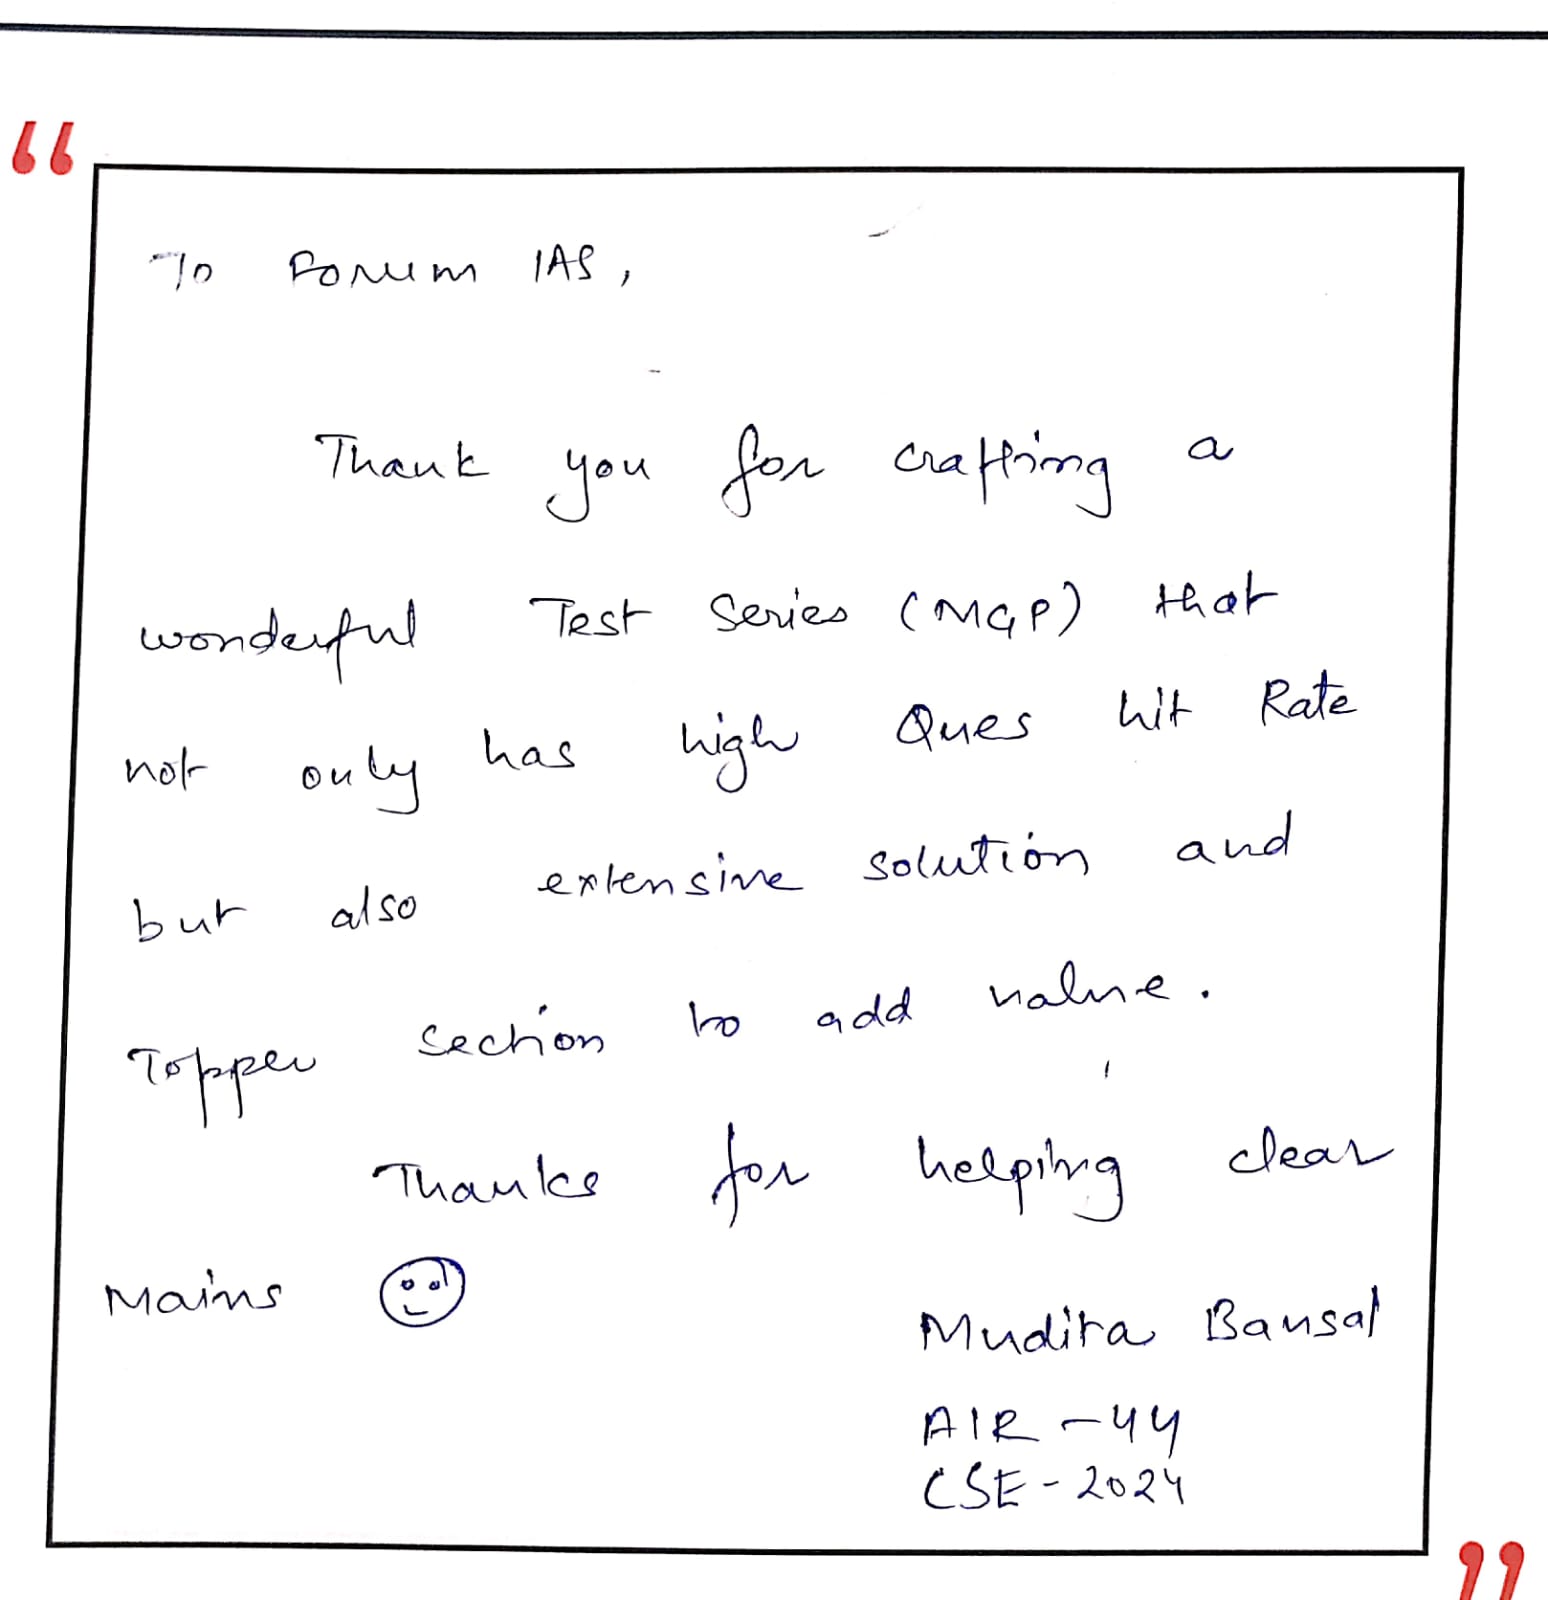 “
To Forum IAS,
Thank you for crafting a
wonderful Test Series (MGP) that
not only has high Ques hit Rate
but also extensive solution and
Topper section to add value.
Thanks for helping clear
Mains ☺
Mudita Bansal
AIR - 44
CSE - 2024
”